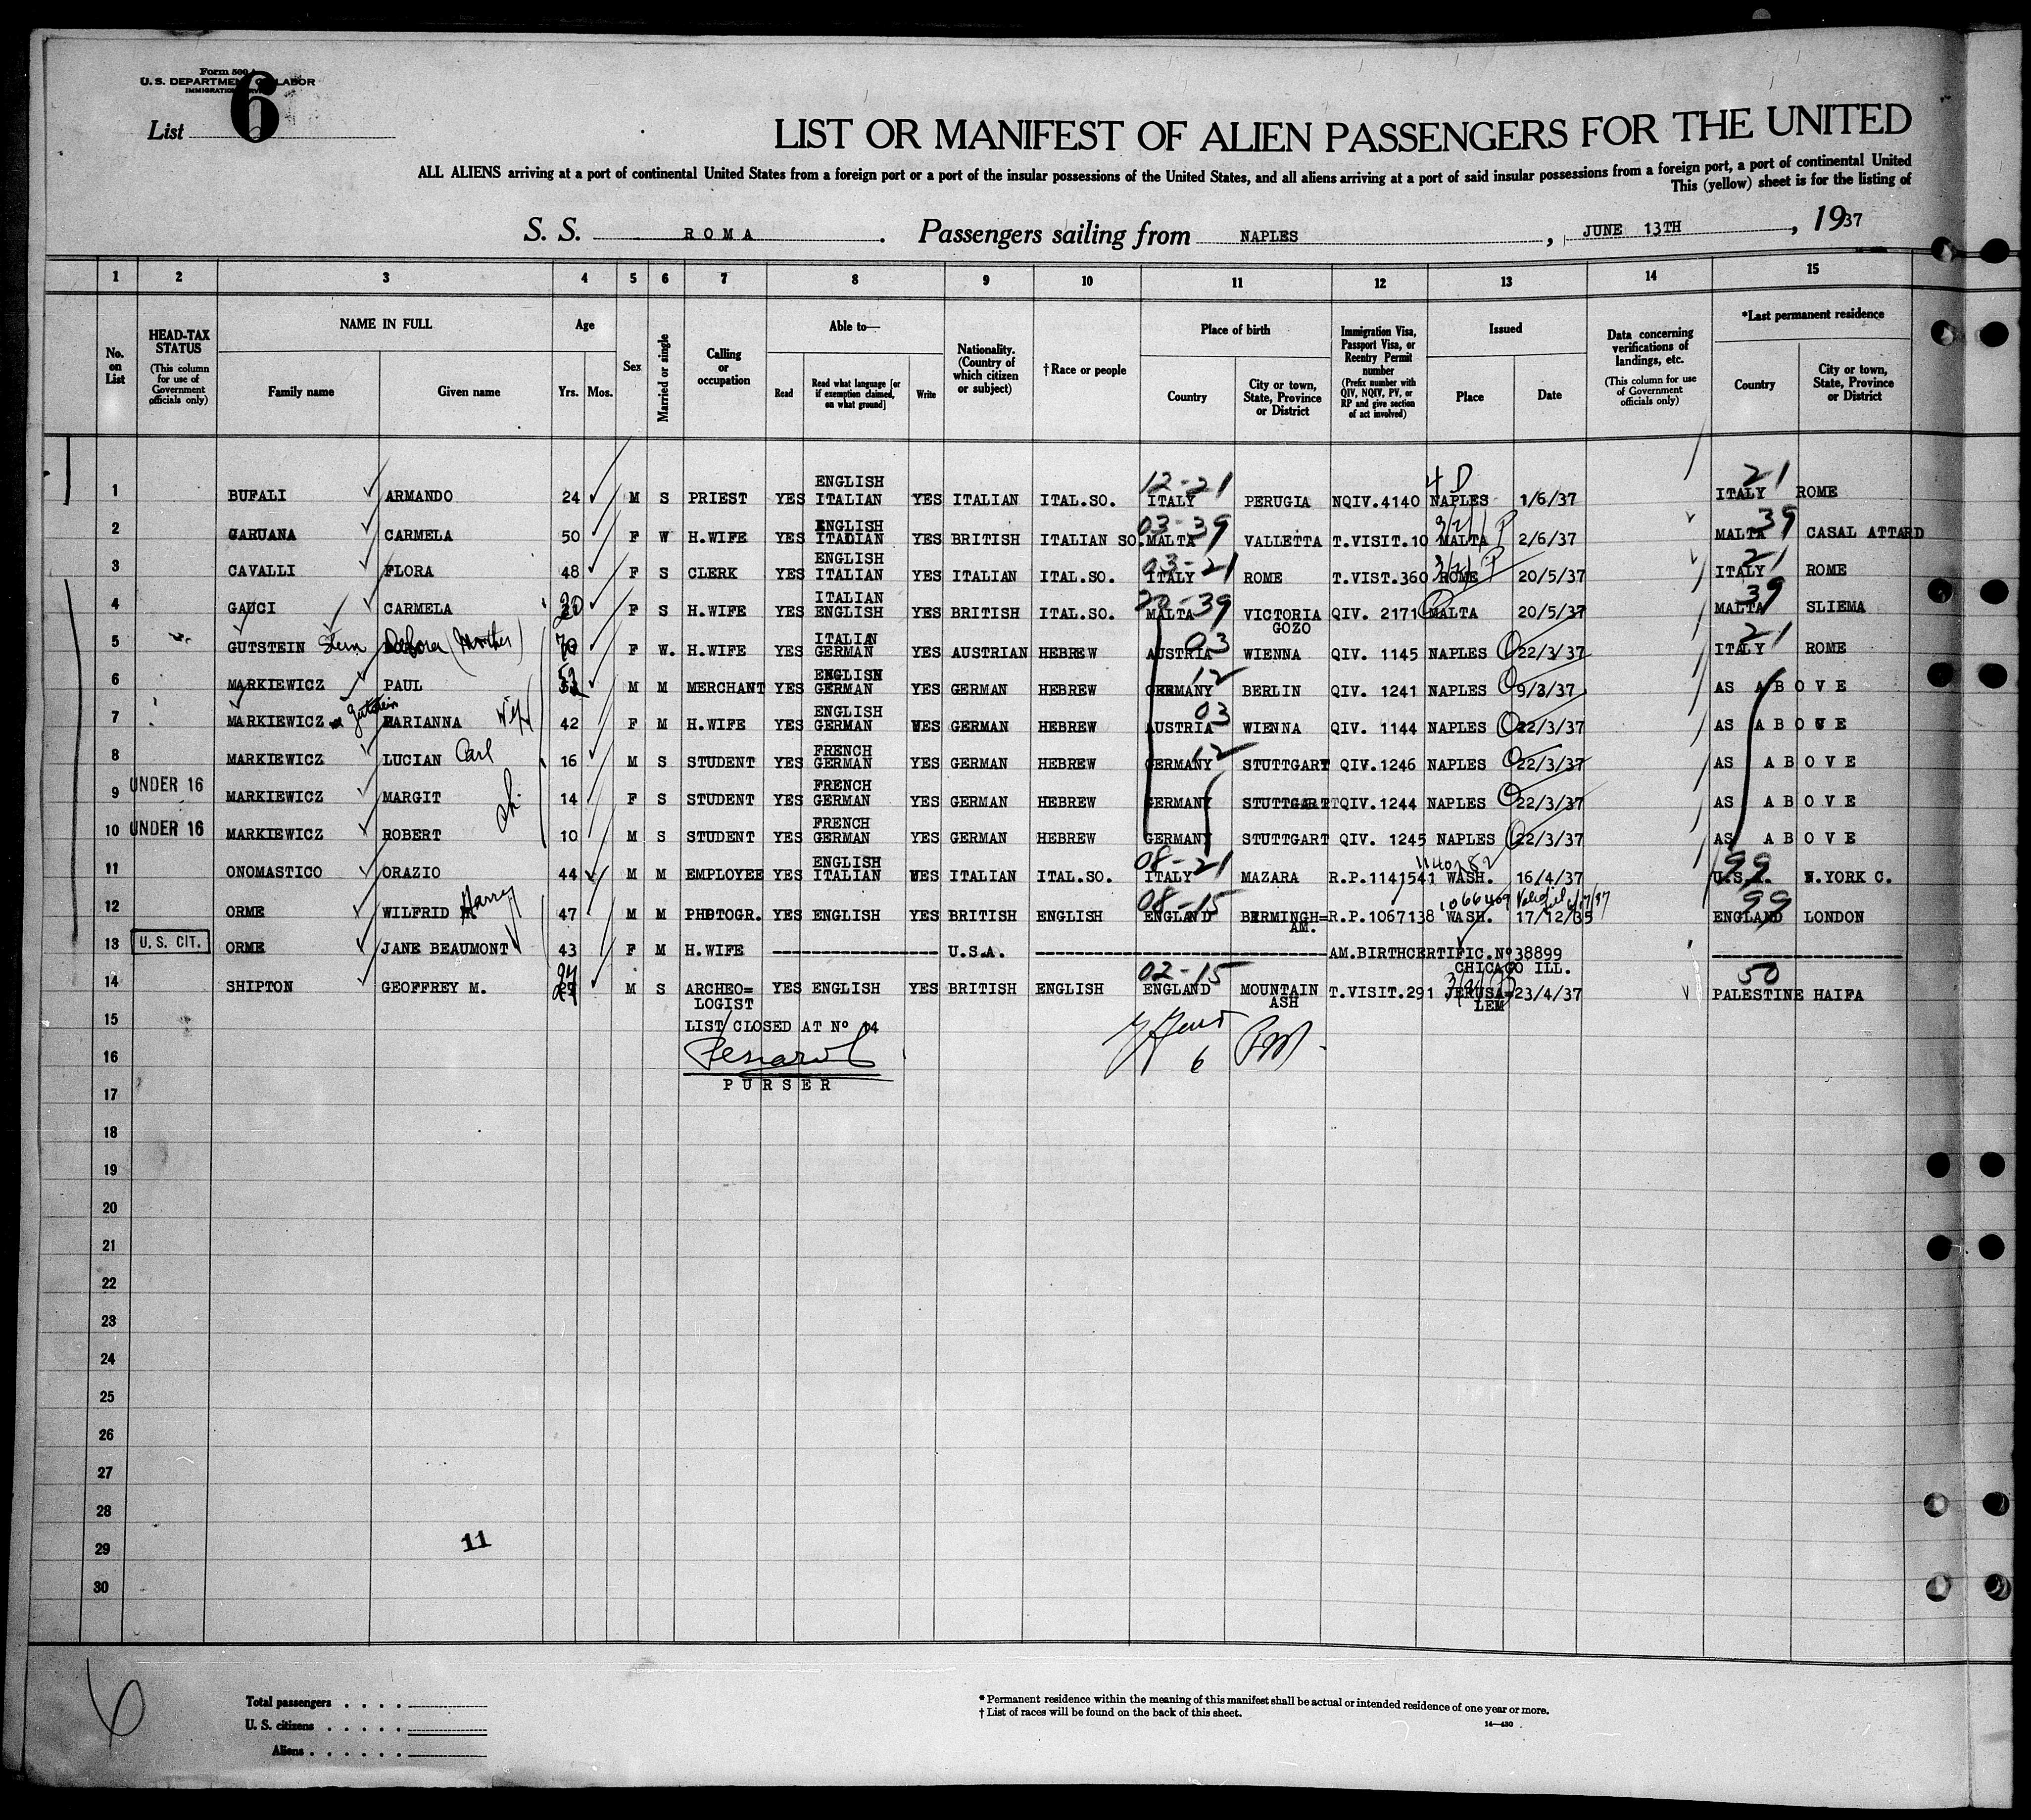 Form 500
U. S. DEPARTMENT OF LABOR
IMMIGRATION SERVICE
List 6
LIST OR MANIFEST OF ALIEN PASSENGERS FOR THE UNITED
ALL ALIENS arriving at a port of continental United States from a foreign port or a port of the insular possessions of the United States, and all aliens arriving at a port of said insular possessions from a foreign port, a port of continental United
This (yellow) sheet is for the listing of
S. S. ROMA. Passengers sailing from NAPLES, JUNE 13TH, 1937
1 2 3 4 5 6 7 8 9 10 11 12 13 14 15
No. on List
HEAD-TAX STATUS (This column for use of Government officials only)
NAME IN FULL Family name Given name
Age Yrs. Mos.
Sex
Married or single
Calling or occupation
Able to— Read Read what language [or if exemption claimed, on what ground] Write
Nationality. (Country of which citizen or subject)
†Race or people
Place of birth Country City or town, State, Province or District
Immigration Visa, Passport Visa, or Reentry Permit number (Prefix number with QIV, NQIV, PV, or RP and give section of act involved)
Issued Place Date
Data concerning verifications of landings, etc. (This column for use of Government officials only)
*Last permanent residence Country City or town, State, Province or District
ENGLISH 12-21 4 D 21
1 BUFALI ARMANDO 24 M S PRIEST YES ITALIAN YES ITALIAN ITAL.SO. ITALY PERUGIA NQIV.4140 NAPLES 1/6/37 ITALY ROME
ENGLISH 03-39 39
2 CARUANA CARMELA 50 F W H.WIFE YES ITALIAN YES BRITISH ITALIAN SO. MALTA VALLETTA T.VISIT.10 MALTA 2/6/37 MALTA CASAL ATTARD
ENGLISH 03-21 21
3 CAVALLI FLORA 48 F S CLERK YES ITALIAN YES ITALIAN ITAL.SO. ITALY ROME T.VIST.360 ROME 20/5/37 ITALY ROME
ITALIAN 20-39 39
4 GAUCI CARMELA F S H.WIFE YES ENGLISH YES BRITISH ITAL.SO. MALTA VICTORIA GOZO QIV. 2171 MALTA 20/5/37 MALTA SLIEMA
ITALIAN 03 21
5 GUTSTEIN Stern Debora (Mother) 70 F W. H.WIFE YES GERMAN YES AUSTRIAN HEBREW AUSTRIA WIENNA QIV. 1145 NAPLES 22/3/37 ITALY ROME
ENGLISH 12
6 MARKIEWICZ PAUL 52 M M MERCHANT YES GERMAN YES GERMAN HEBREW GERMANY BERLIN QIV. 1241 NAPLES 9/3/37 AS ABOVE
Gutstein ENGLISH 03
7 MARKIEWICZ MARIANNA Wife 42 F M H.WIFE YES GERMAN YES GERMAN HEBREW AUSTRIA WIENNA QIV. 1144 NAPLES 22/3/37 AS ABOVE
FRENCH 12
8 MARKIEWICZ LUCIAN Carl 16 M S STUDENT YES GERMAN YES GERMAN HEBREW GERMANY STUTTGART QIV.1246 NAPLES 22/3/37 AS ABOVE
FRENCH
9 UNDER 16 MARKIEWICZ MARGIT 14 F S STUDENT YES GERMAN YES GERMAN HEBREW GERMANY STUTTGART QIV.1244 NAPLES 22/3/37 AS ABOVE
FRENCH
10 UNDER 16 MARKIEWICZ ROBERT 10 M S STUDENT YES GERMAN YES GERMAN HEBREW GERMANY STUTTGART QIV. 1245 NAPLES 22/3/37 AS ABOVE
ENGLISH 08-21 1140282 99
11 ONOMASTICO ORAZIO 44 M M EMPLOYEE YES ITALIAN YES ITALIAN ITAL.SO. ITALY MAZARA R.P.1141541 WASH. 16/4/37 U.S.A. N.YORK C.
Harry 08-15 1066409 99
12 ORME WILFRID 47 M M PHOTOGR. YES ENGLISH YES BRITISH ENGLISH ENGLAND BIRMINGH=AM. R.P.1067138 WASH. 17/12/35 ENGLAND LONDON
13 U.S. CIT. ORME JANE BEAUMONT 43 F M H.WIFE U.S.A. AM.BIRTHCERTIFIC.Nº38899
CHICAGO ILL.
02-15 50
14 SHIPTON GEOFFREY M. M S ARCHEO=LOGIST YES ENGLISH YES BRITISH ENGLISH ENGLAND MOUNTAIN ASH T.VISIT.291 JERUSA=LEM 23/4/37 PALESTINE HAIFA
15 LIST CLOSED AT Nº 14
16 6
PURSER
17
18
19
20
21
22
23
24
25
26
27
28
29
11
30
6
Total passengers
U. S. citizens
Aliens
* Permanent residence within the meaning of this manifest shall be actual or intended residence of one year or more.
† List of races will be found on the back of this sheet.
14—430